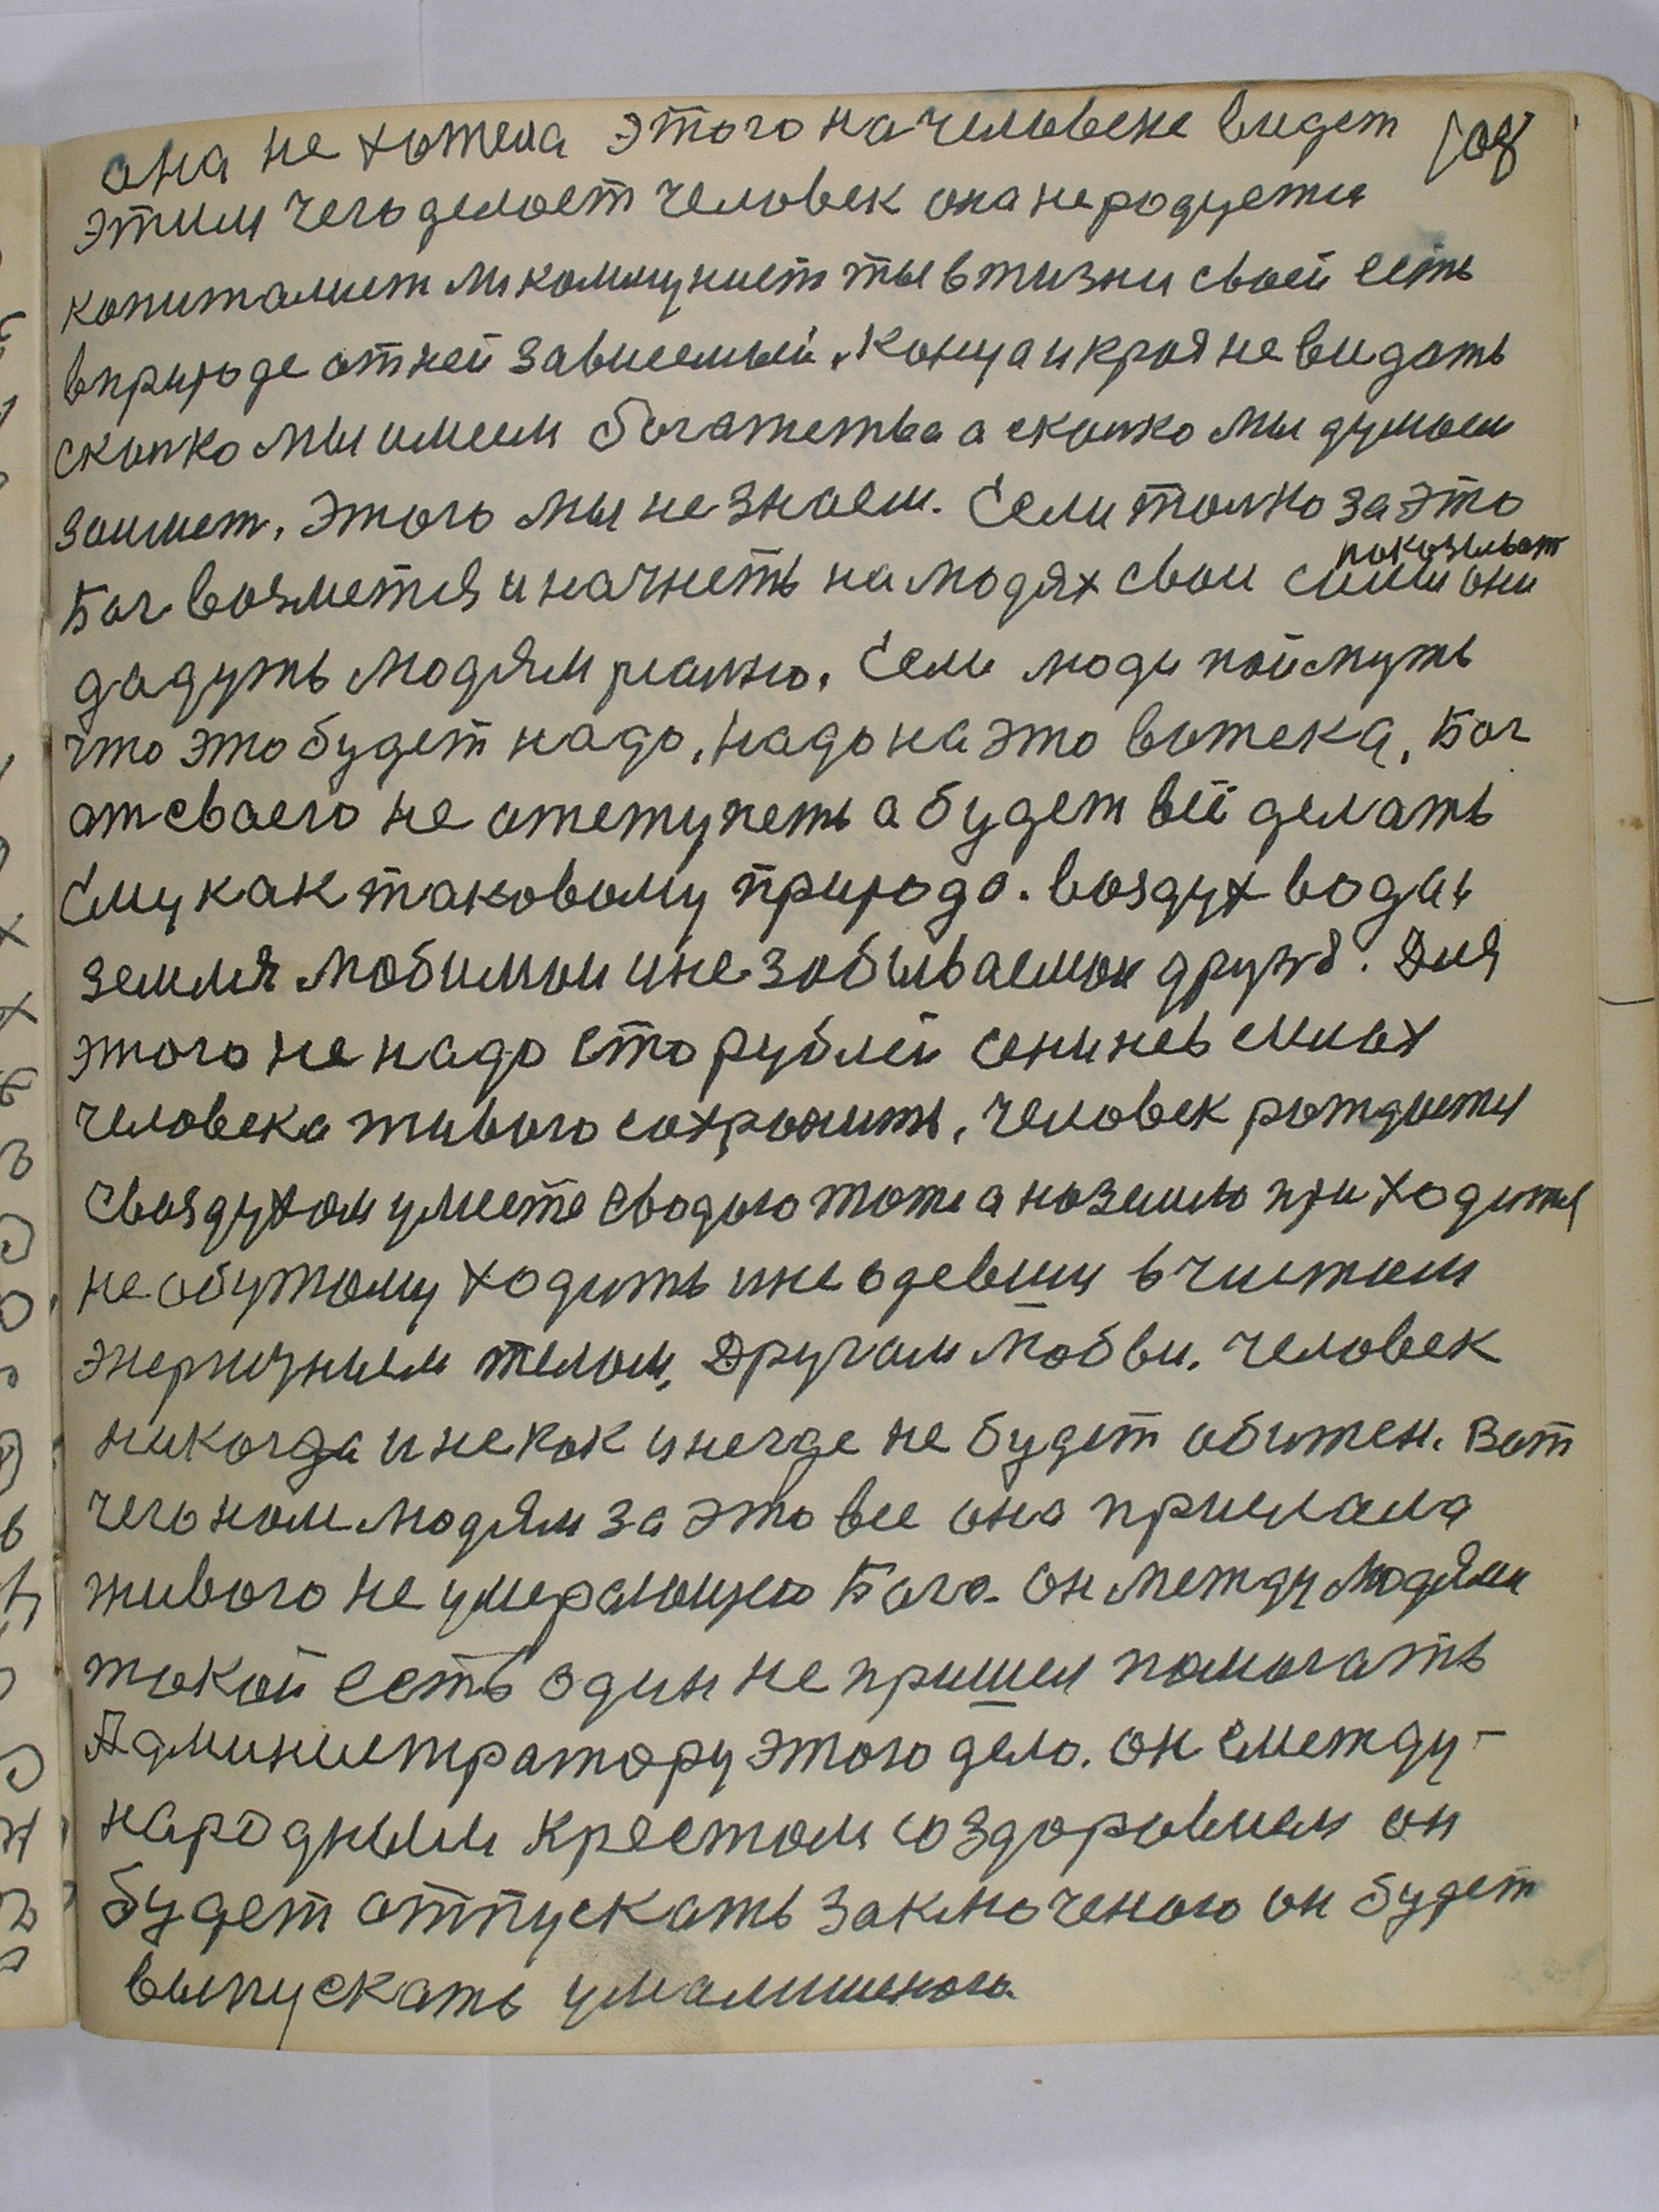 она не хотела этого на человеке видет 108
этим чего делоет человек она не родуется
копиталист ли коммунист ты в жизни своей есть
в природе от ней зависемый. Конца и кроя не видать
сколко мы имеем богатетва а сколко мы думоем
заимет. Этого мы не знаем. Если толко за это
показыват
Бог возметця и начнеть на людях свои силы они
дадуть людям реално. Если люди поймуть
что это будет надо, надо на это вытека. Бог
от сваего не отступеть а будет всё делать
Ему как таковому природо. воздух вода и
земля любимыи и не забываемыи друзя. Для
этого не надо сто рублей они не в силах
человека живого сохронить. человек рождается
с воздухом уместе с водою тоже а по землю приходится
не обутому ходить и не одевши в чистом
энергичным телом. Другом любви. человек
никогда и некак и негде не будет обижен. Вот
чего ном людям за это все она прислала
живого не умерающего Бога. он между людями
такой есть один не пришел помогать
Администратору этого дело. он с между-
народным крестом создоровием он
будет отпускать заключеного он будет
выпускать умалишеного.